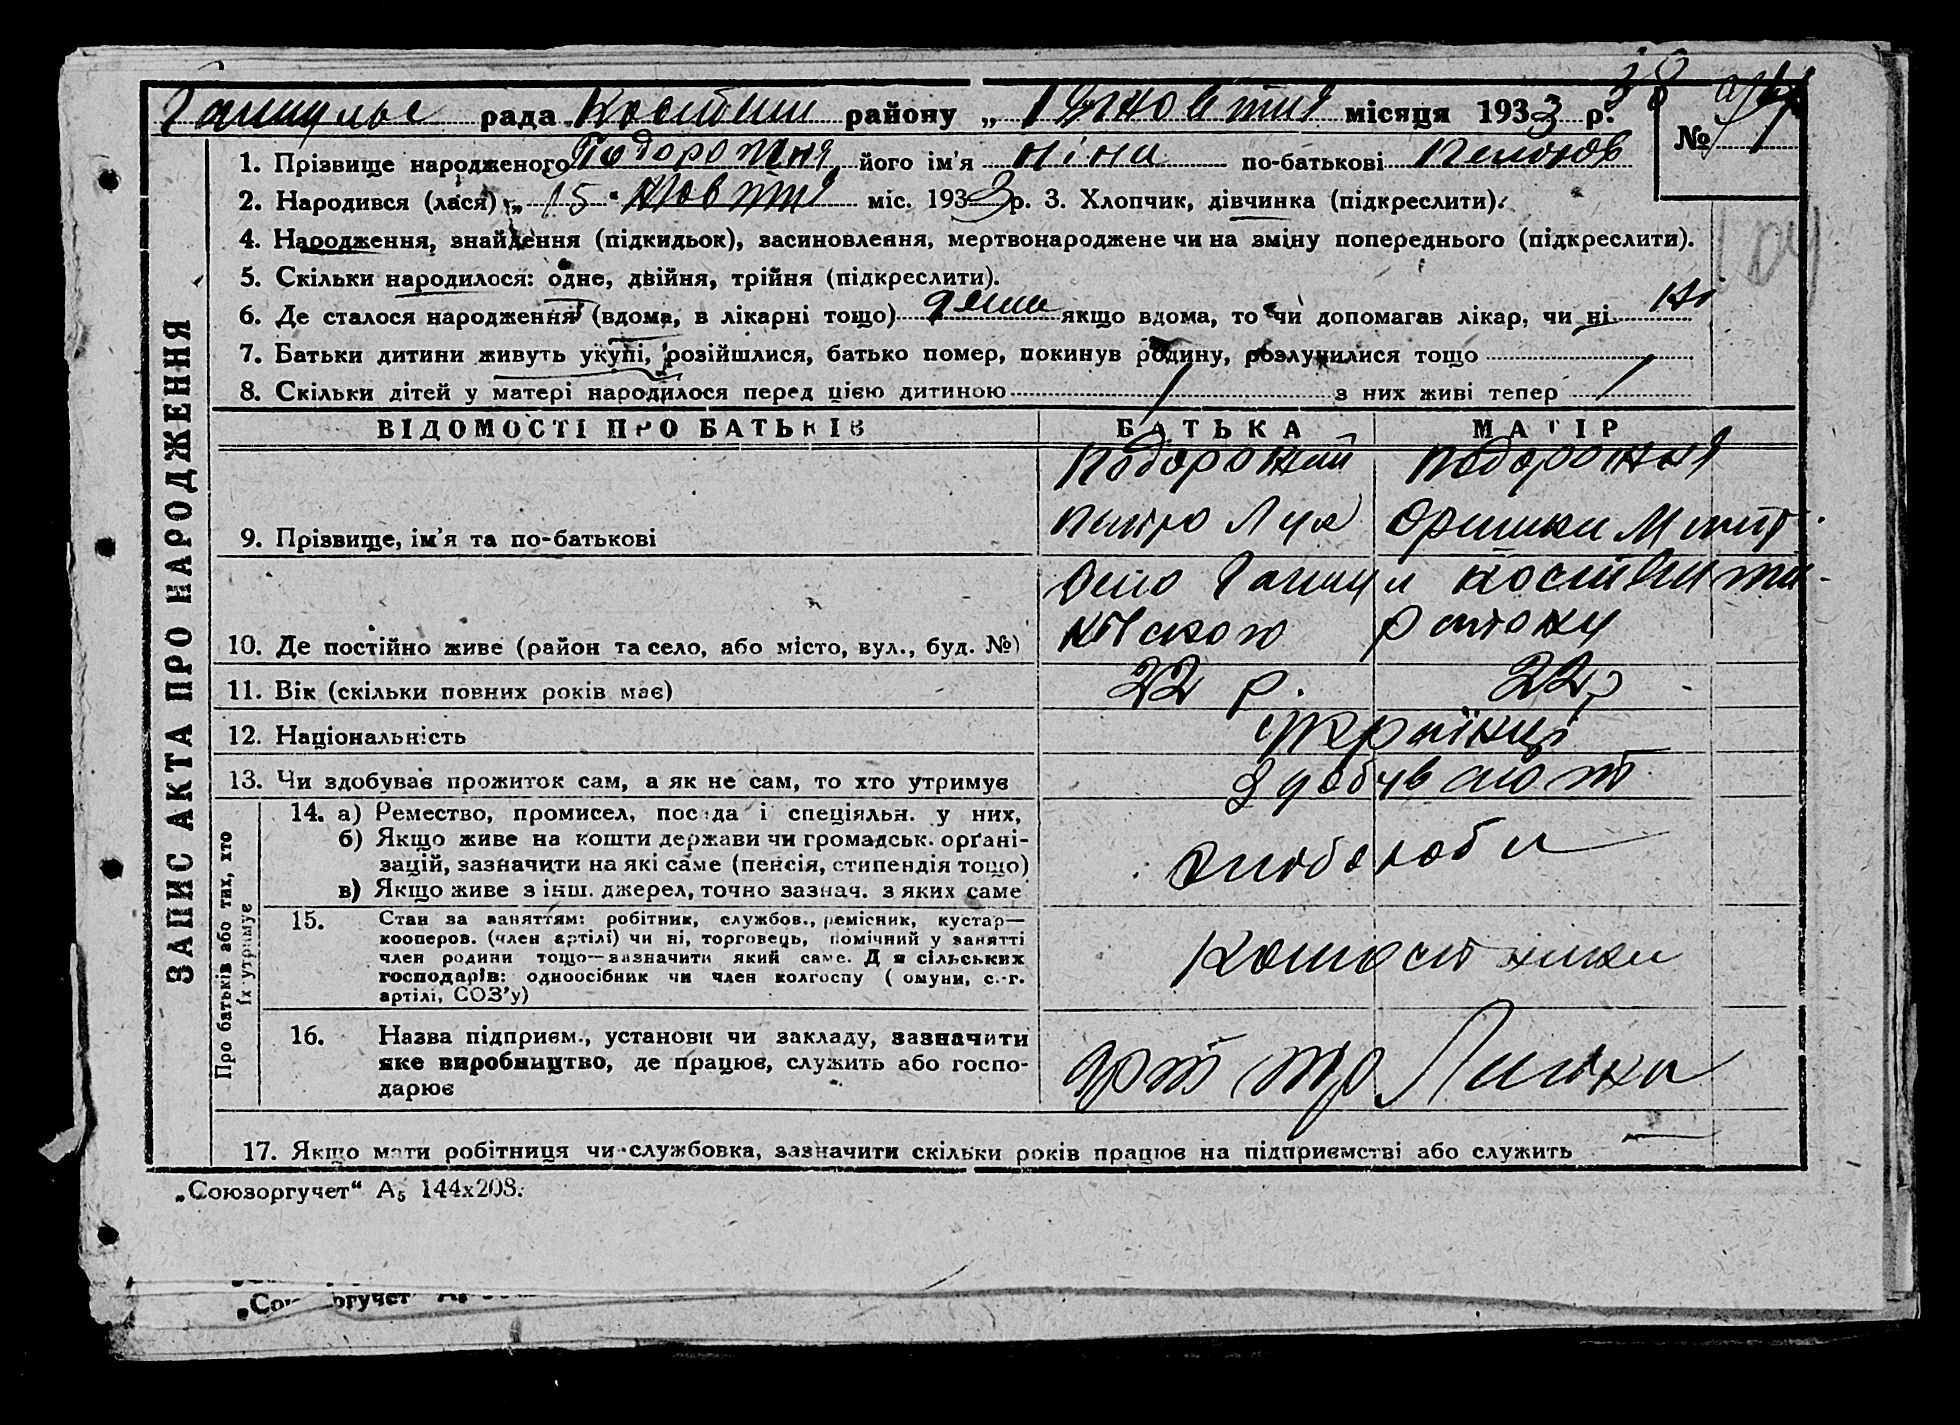 рада району „ жовтня місяця 1933 р. №
1. Прізвище народженого Подорожня його ім'я Ніна по-батькові
2. Народився (лася) „ 15 " жовтня міс. 1933 р. 3. Хлопчик, дівчинка (підкреслити).
4. Народження, знайдення (підкидьок), засиновлення, мертвонароджене чи на зміну попереднього (підкреслити).
5. Скільки народилося: одне, двійня, трійня (підкреслити).
6. Де сталося народження (вдома, в лікарні тощо) якщо вдома, то чи допомагав лікар, чи ні ні
7. Батьки дитини живуть укупі, розійшлися, батько помер, покинув родину, розлучилися тощо
8. Скільки дітей у матері народилося перед цією дитиною 1 з них живі тепер 1
ЗАПИС АКТА ПРО НАРОДЖЕННЯ
ВІДОМОСТІ ПРО БАТЬКІВ БАТЬКА МАТІР
Подорожній Подорожня
9. Прізвище, ім'я та по-батькові Петро Лук Оришка
10. Де постійно живе (район та село, або місто, вул., буд. №) району
11. Вік (скільки повних років має) 22 р. 22 р
12. Національність Українці
13. Чи здобуває прожиток сам, а як не сам, то хто утримує здобувають
Про батьків або тих, хто їх утримує
14. а) Ремество, промисел, посада і спеціяльн. у них,
б) Якщо живе на кошти держави чи громадськ. орґані-
зацій, зазначити на які саме (пенсія, стипендія тощо) хлібороби
в) Якщо живе з інш. джерел, точно зазнач. з яких саме
15. Стан за заняттям: робітник, службов., ремісник, кустар—
кооперов. (член артілі) чи ні, торговець, помічний у занятті
член родини тощо—зазначити який саме. Для сільських
господарів: одноосібник чи член колгоспу (комуни, с.-г.
артілі, СОЗ'у)
16. Назва підприєм., установи чи закладу, зазначити
яке виробництво, де працює, служить або госпо-
дарює арт
17. Якщо мати робітниця чи службовка, зазначити скільки років працює на підприємстві або служить —
„Союзоргучет“ А₅ 144х208.